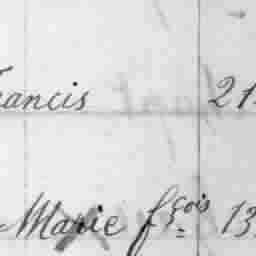 rancis 21
Marie f.çois 13